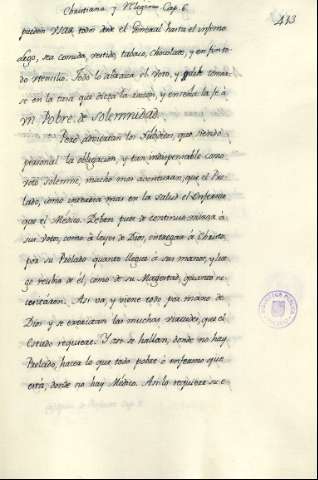 Christiana y Religiosa Cap. 6.
413
pueden usar todos desde el General hasta el infimo
Lego, sea comida, vestido, tabaco, chocolate, y en fin to
do utensilio. Todo lo abraza el Voto, y debe tomar
se en la tasa que dicta la razon, y enseña la fe á
un Pobre de Solemnidad.
Pero adviertan los Subditos, que siendo
personal la obligacion, y tan indispensable como
voto solemne, mucho mas aventuran, que el Pre
lado, como interesa mas en la salud el Enfermo
que el Medico. Deban pues de continuo
sus Votos, como á leyes de Dios, entregan á Christo,
por su Prelado quanto llegue á sus manos, y lue
go reciban de él, como de su Magestad, quanto ne
cesitaren. Asi va, y viene todo por mano de
Dios y se exercitan las muchas virtudes, que el
Estado requiere. Y si se hallan, donde no hay
Prelado, hacen lo que todo pobre ó enfermo que
está, donde no hay Médico. Asi lo requiere su e